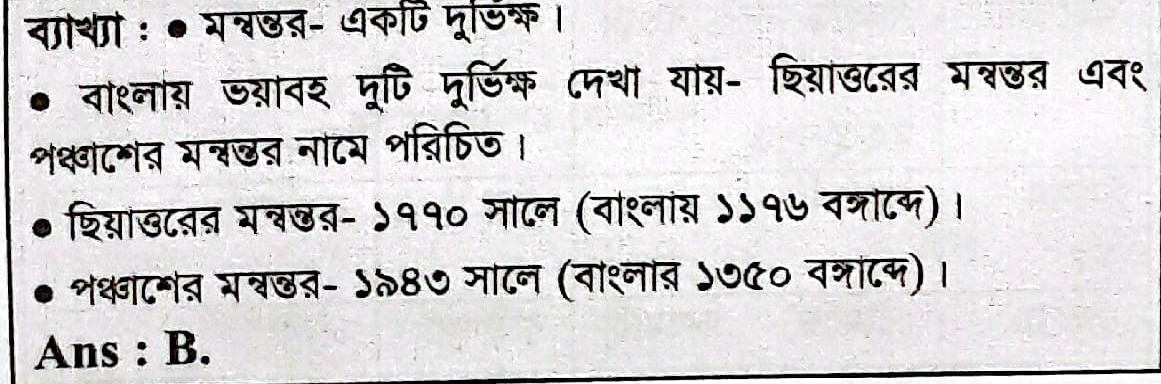 ব্যাখ্যা : ● মন্বন্তর- একটি দুর্ভিক্ষ।
● বাংলায় ভয়াবহ দুটি দুর্ভিক্ষ দেখা যায়- ছিয়াত্তরের মন্বন্তর এবং
পঞ্চাশের মন্বন্তর নামে পরিচিত।
● ছিয়াত্তরের মন্বন্তর- ১৭৭০ সালে (বাংলায় ১১৭৬ বঙ্গাব্দে)।
● পঞ্চাশের মন্বন্তর- ১৯৪৩ সালে (বাংলার ১৩৫০ বঙ্গাব্দে)।
Ans : B.